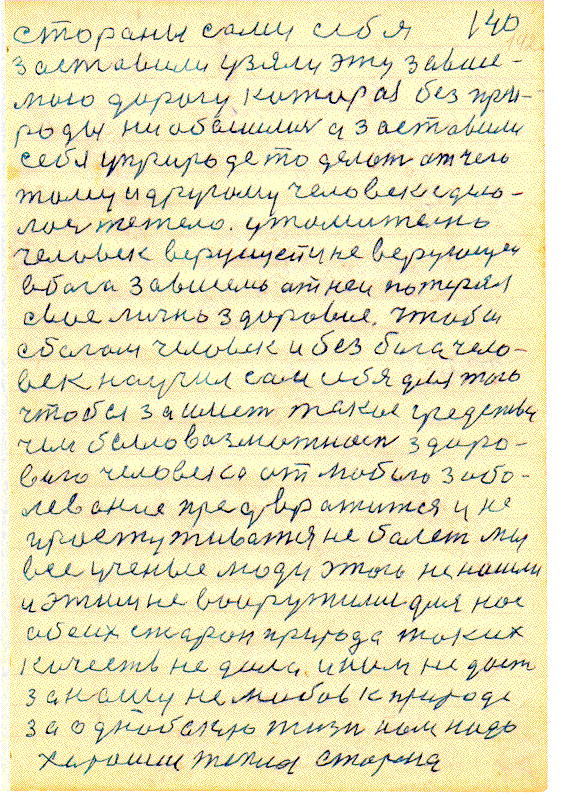 стораны сами себя 140
заставили узяли эту завис-
мою дорогу котарая без при-
роды ни обашлися а заставили
себя уприроде то делат отчего
тому и другому человеке сдело-
лоя тежело. утомителнь
человек верующети не верующей
вбога зависель от неи потерял
свое личнь здоровие. чтобы
сбогом человек и без бога чело-
век научил сам себя для того
чтобы заимет такие средства
чем былловазможност здоро-
вого человека от любого забо-
левание предвратится и не
простуживатся не болет мы
все ученые люди этого не нашли
и этим не вооружили для нос
обеих старон природа таких
качеств не дала. и нам не дает
за нашу не любов к природе
за однобокую жизн нам надо
хорошии теплоя сторона